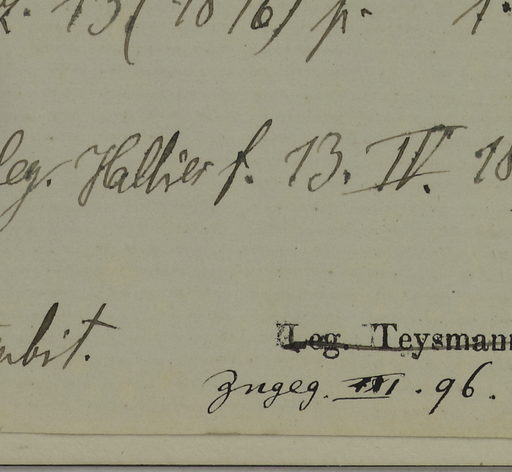 13 (1876) p.
leg. Hallier f. 13. IV. 18
Leg. Teysmann
Ingeg. III. 96.